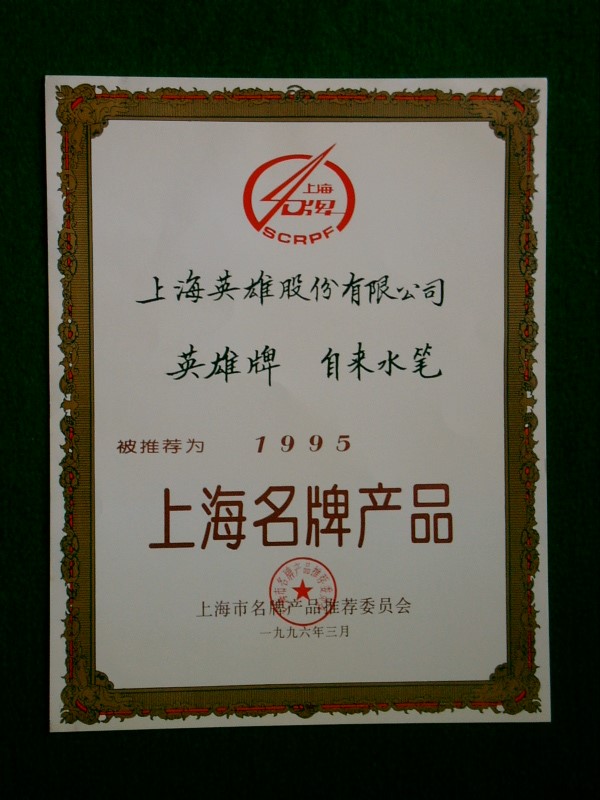 上海
名牌
SCRPF
上海英雄股份有限公司
英雄牌 自来水笔
被推荐为 1995
上海名牌产品
上海市名牌产品推荐委员会
一九九六年三月